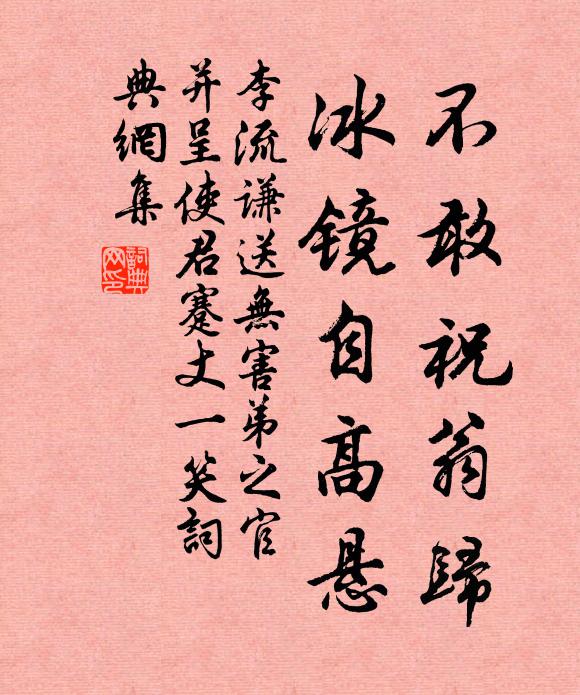 不敢祝翁歸
冰镜自高悬
李流谦送無害弟之官
并呈使君蹇丈一笑詞
典網集
詞典網印